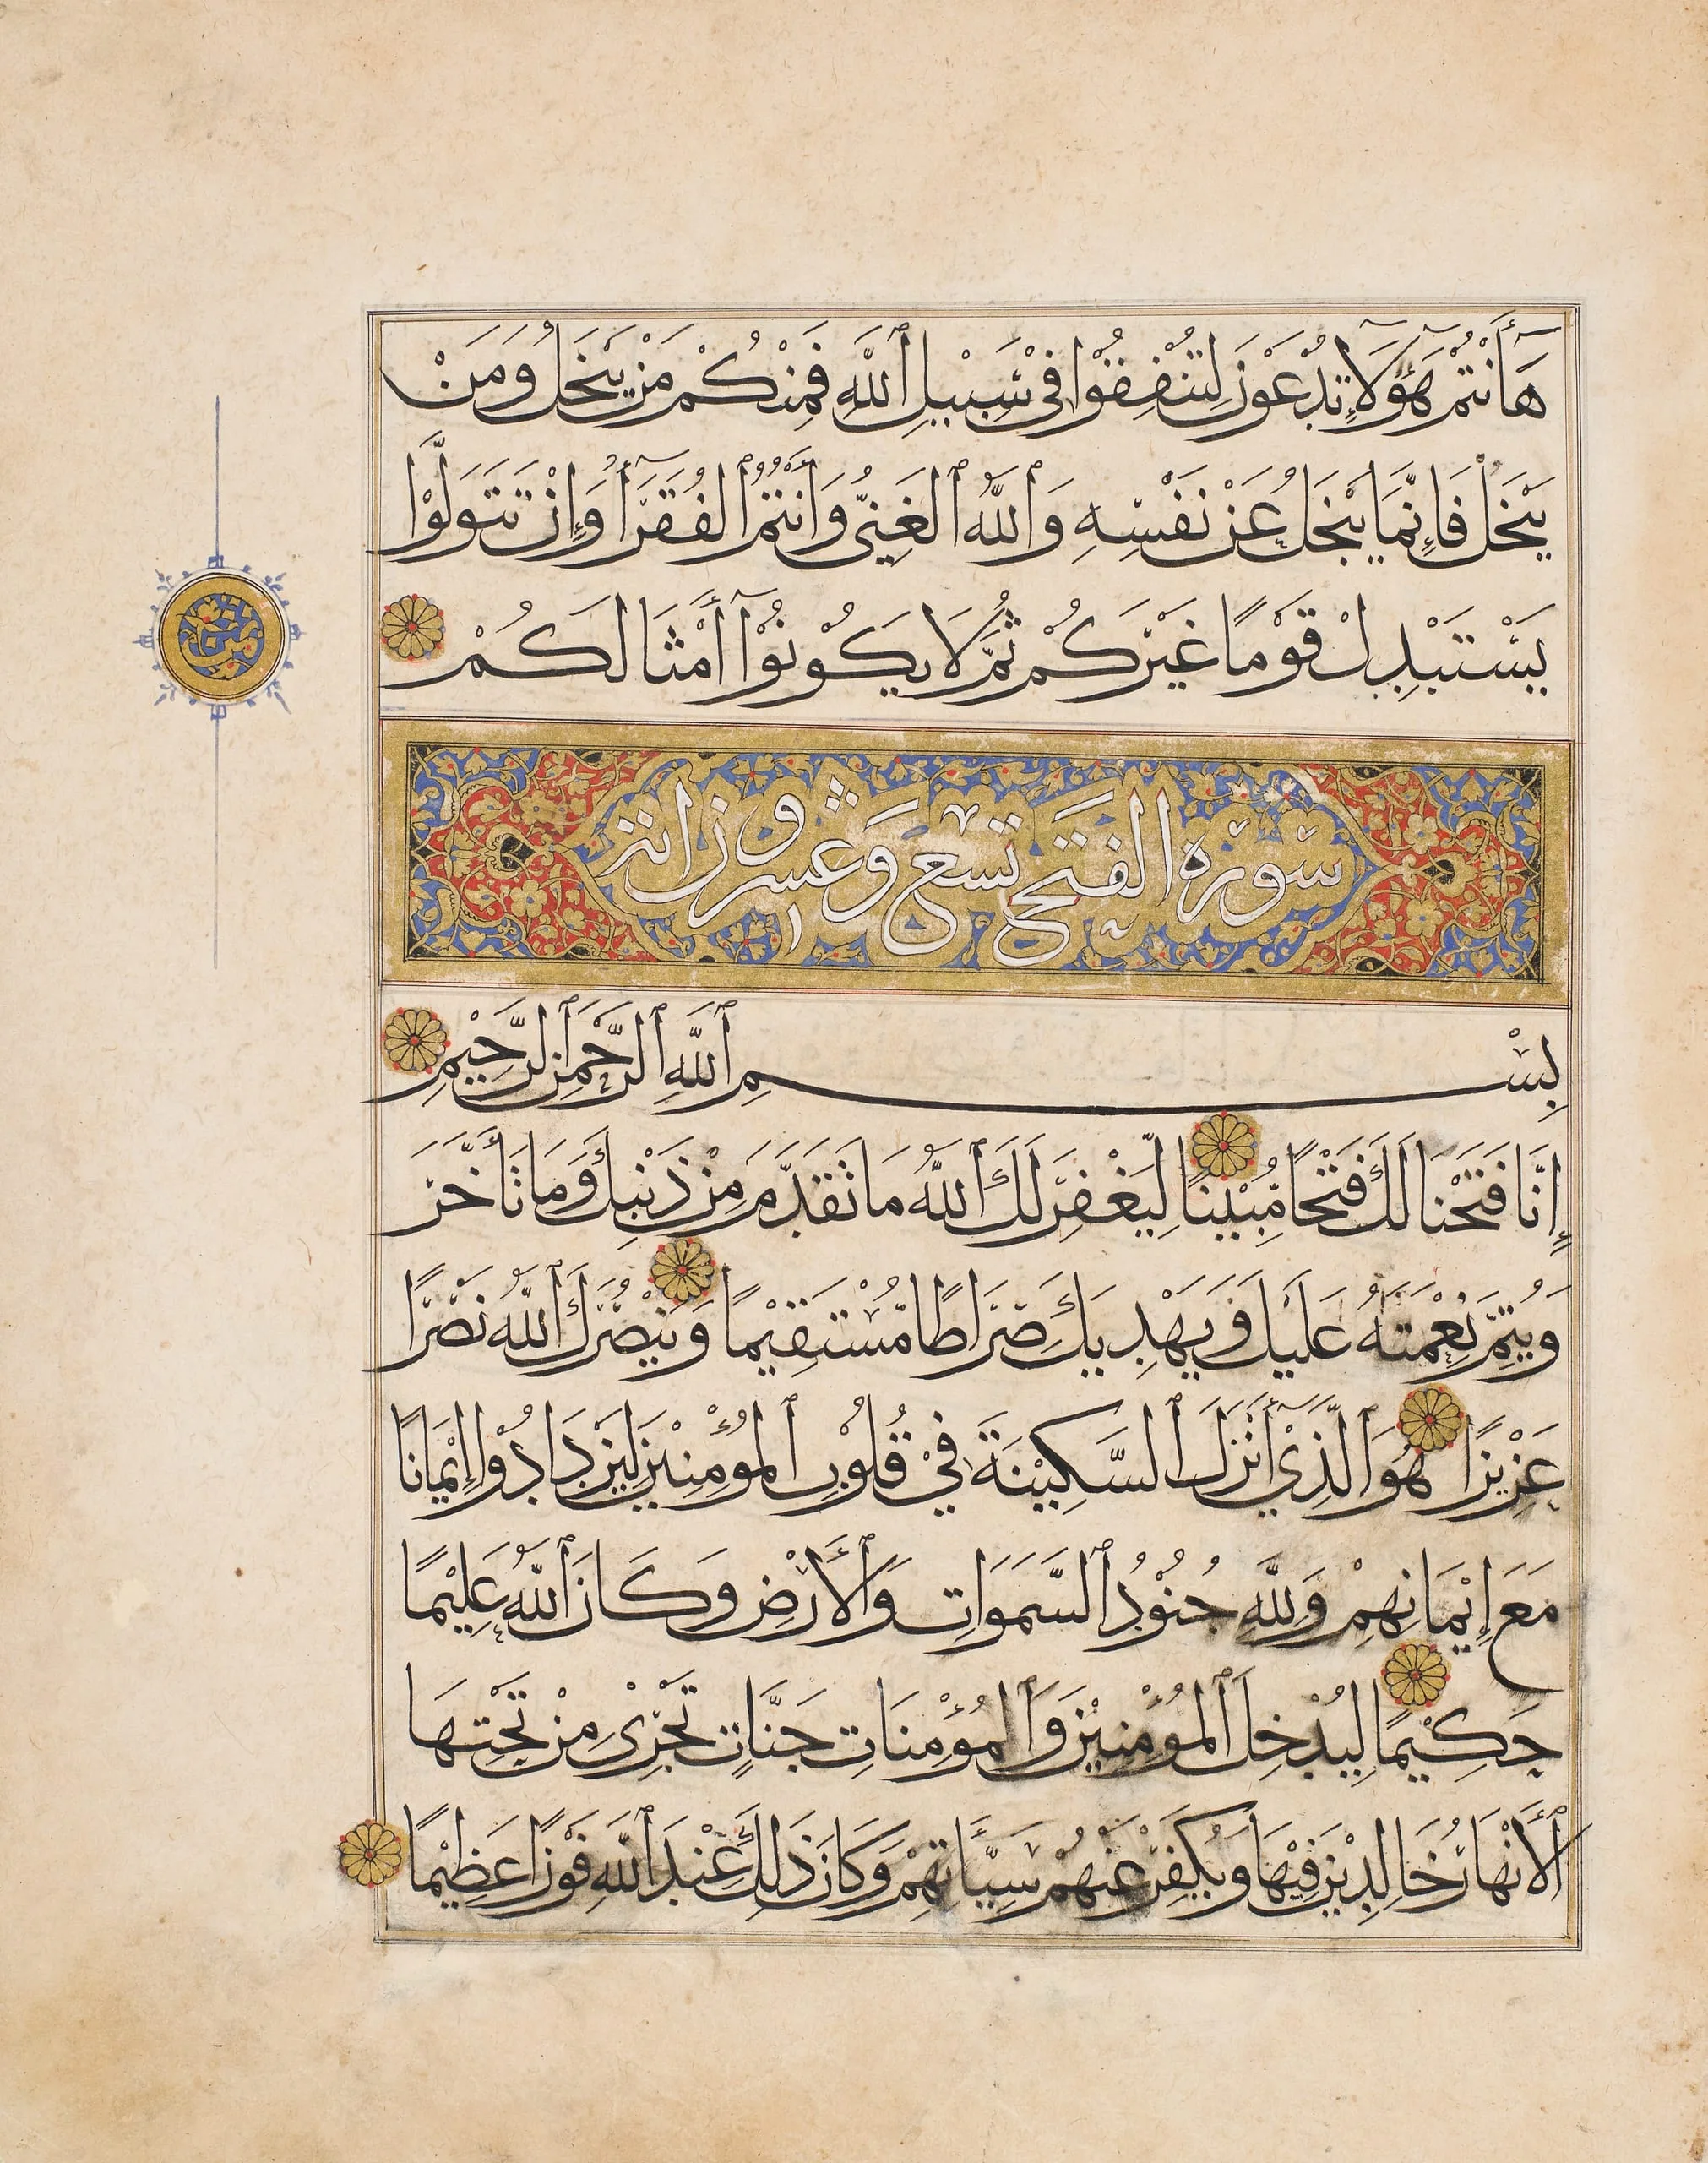 هَآأَنْتُمْ هَؤُلَآءِ تُدْعَوْنَ لِتُنْفِقُوْا فِيْ سَبِيْلِ ٱللَّهِ فَمِنْكُمْ مَنْ يَبْخَلُ وَمَنْ
يَبْخَلْ فَإِنَّمَا يَبْخَلُ عَنْ نَفْسِهِ وَٱللَّهُ ٱلْغَنِيُّ وَأَنْتُمُ ٱلْفُقَرَآءُ وَإِنْ تَتَوَلَّوْا
يَسْتَبْدِلْ قَوْمًا غَيْرَكُمْ ثُمَّ لَا يَكُوْنُوْٓا أَمْثَالَكُمْ
سورة الفتح تسع وعشرون اية
بِسْمِ ٱللَّهِ ٱلرَّحْمَنِ ٱلرَّحِيْمِ
إِنَّا فَتَحْنَا لَكَ فَتْحًا مُّبِيْنًا لِّيَغْفِرَ لَكَ ٱللَّهُ مَا تَقَدَّمَ مِنْ ذَنْبِكَ وَمَا تَأَخَّرَ
وَيُتِمَّ نِعْمَتَهُ عَلَيْكَ وَيَهْدِيَكَ صِرَاطًا مُّسْتَقِيْمًا وَيَنْصُرَكَ ٱللَّهُ نَصْرًا
عَزِيْزًا هُوَ ٱلَّذِيْٓ أَنْزَلَ ٱلسَّكِيْنَةَ فِيْ قُلُوْبِ ٱلْمُؤْمِنِيْنَ لِيَزْدَادُوْا إِيْمَانًا
مَعَ إِيْمَانِهِمْ وَلِلَّهِ جُنُوْدُ ٱلسَّمَوَاتِ وَٱلْأَرْضِ وَكَانَ ٱللَّهُ عَلِيْمًا
حَكِيْمًا لِيُدْخِلَ ٱلْمُؤْمِنِيْنَ وَٱلْمُؤْمِنَاتِ جَنَّاتٍ تَجْرِيْ مِنْ تَحْتِهَا
ٱلْأَنْهَارُ خَالِدِيْنَ فِيْهَا وَيُكَفِّرَ عَنْهُمْ سَيِّأَتِهِمْ وَكَانَ ذَلِكَ عِنْدَ ٱللَّهِ فَوْزًا عَظِيْمًا